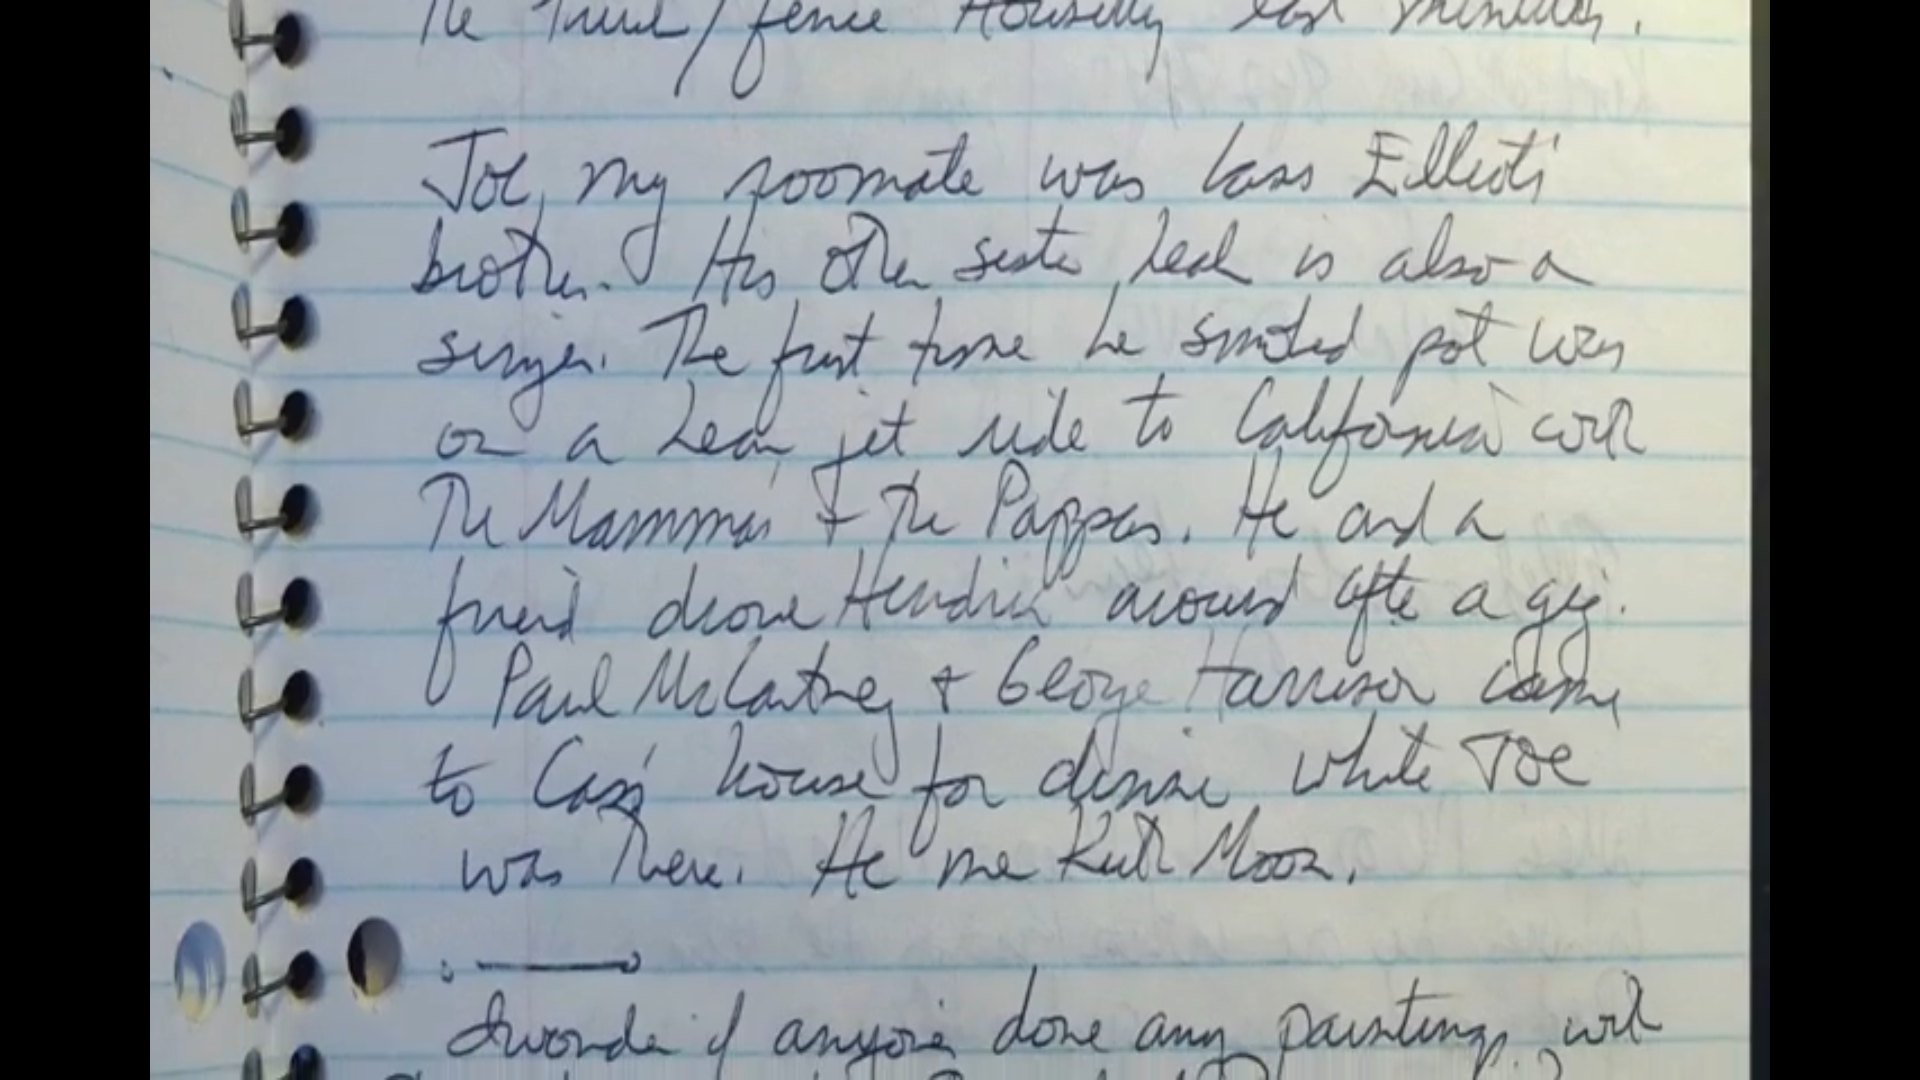 The / fence Housing last minute.
Joe, my roomate was Cass Elliots
brother. His other sister Leah is also a
singer. The first time he smoked pot was
on a Lear jet ride to California with
The Mammas + the Pappas. He and a
friend drove Hendrix around after a gig.
Paul McCartney + George Harrison came
to Cass' house for dinner while Joe
was there. He me Keith Moon.
I wonder if anyone done any paintings with